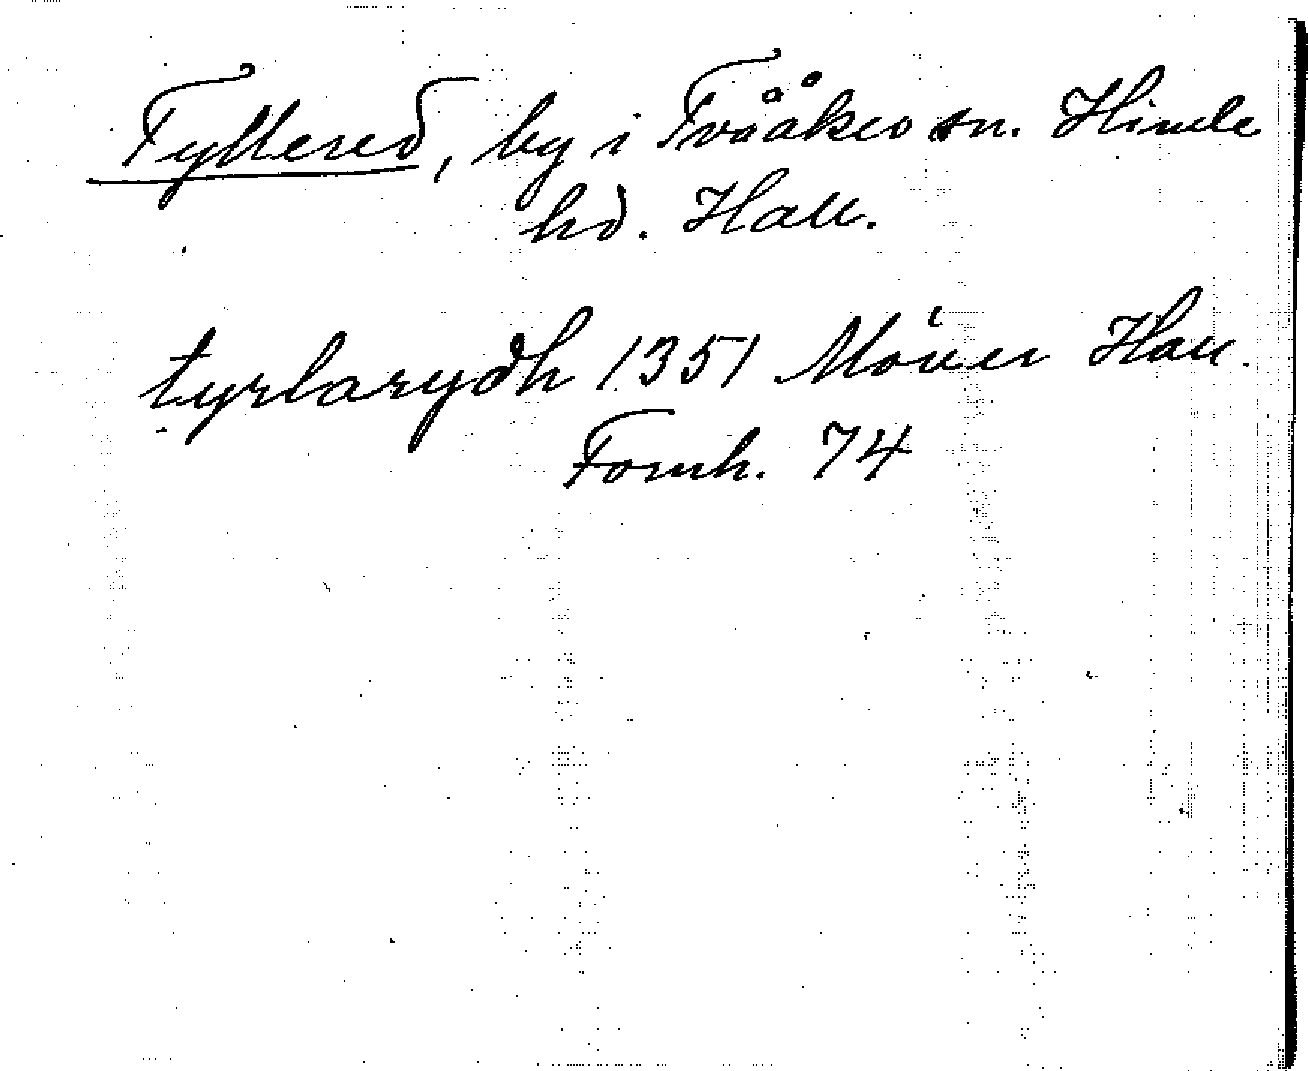 Tyllered, by i Tvååker sn. Himle
hd. Hall.
tyrlarydh 1351 Möller Hall.
Fornh. 74